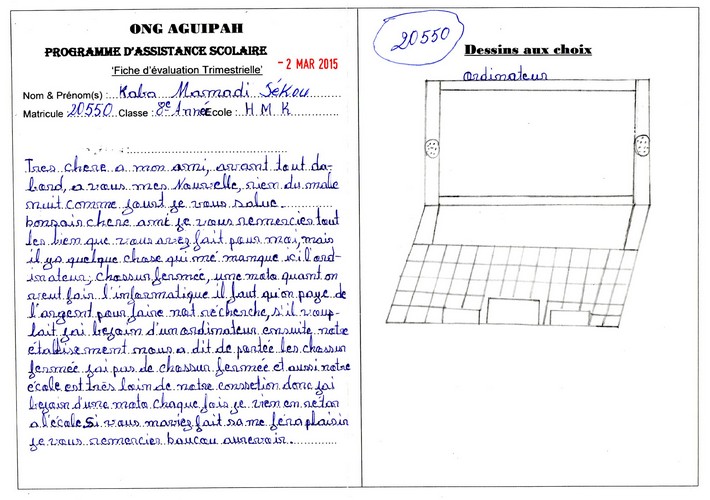 ONG AGUIPAH
PROGRAMME D'ASSISTANCE SCOLAIRE
'Fiche d'évaluation Trimestrielle'
- 2 MAR 2015
Nom & Prénom(s) : Kaba Mamadi Sékou
Matricule 20550 Classe : 8e Année Ecole : H M K
Tres chere a mon ami, avant tout da-
bord, a vous mes Nouvelle, rien du male
nuit comme jourt je vous salue.
bonsoir chere ami je vous remercies tout
les bien que vous avez fait pour moi, mais
il ya quelque chose qui me manque ici l'ord-
inateur, chossur fermée, une moto quant on
veut fair l'informatique il faut qu'on paye de
l'argent pour faire not recherche, s'il voup-
lait j'ai besoin d'un ordinateur ensuite notre
établissement nous a dit de portée les chossur
fermée j'ai pas de chossur fermée et aussi notre
école est très loin de notre conssetion donc j'ai
besoin d'une moto chaque fois je vien en retar
a l'école. Si vous m'aviez fait sa me féra plaisir
je vous remercier baucou aurevoir.
20550
Dessins aux choix
ordinateur